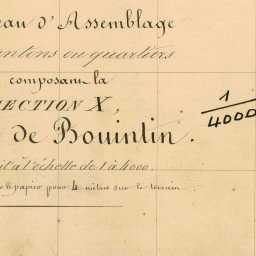 eau d'Assemblage
antons ou quartiers
composant la
SECTION X,
de Bouintin.
1/4000
it à l'échelle de 1 à 4000.
le papier pour 4 mètres sur le terrain